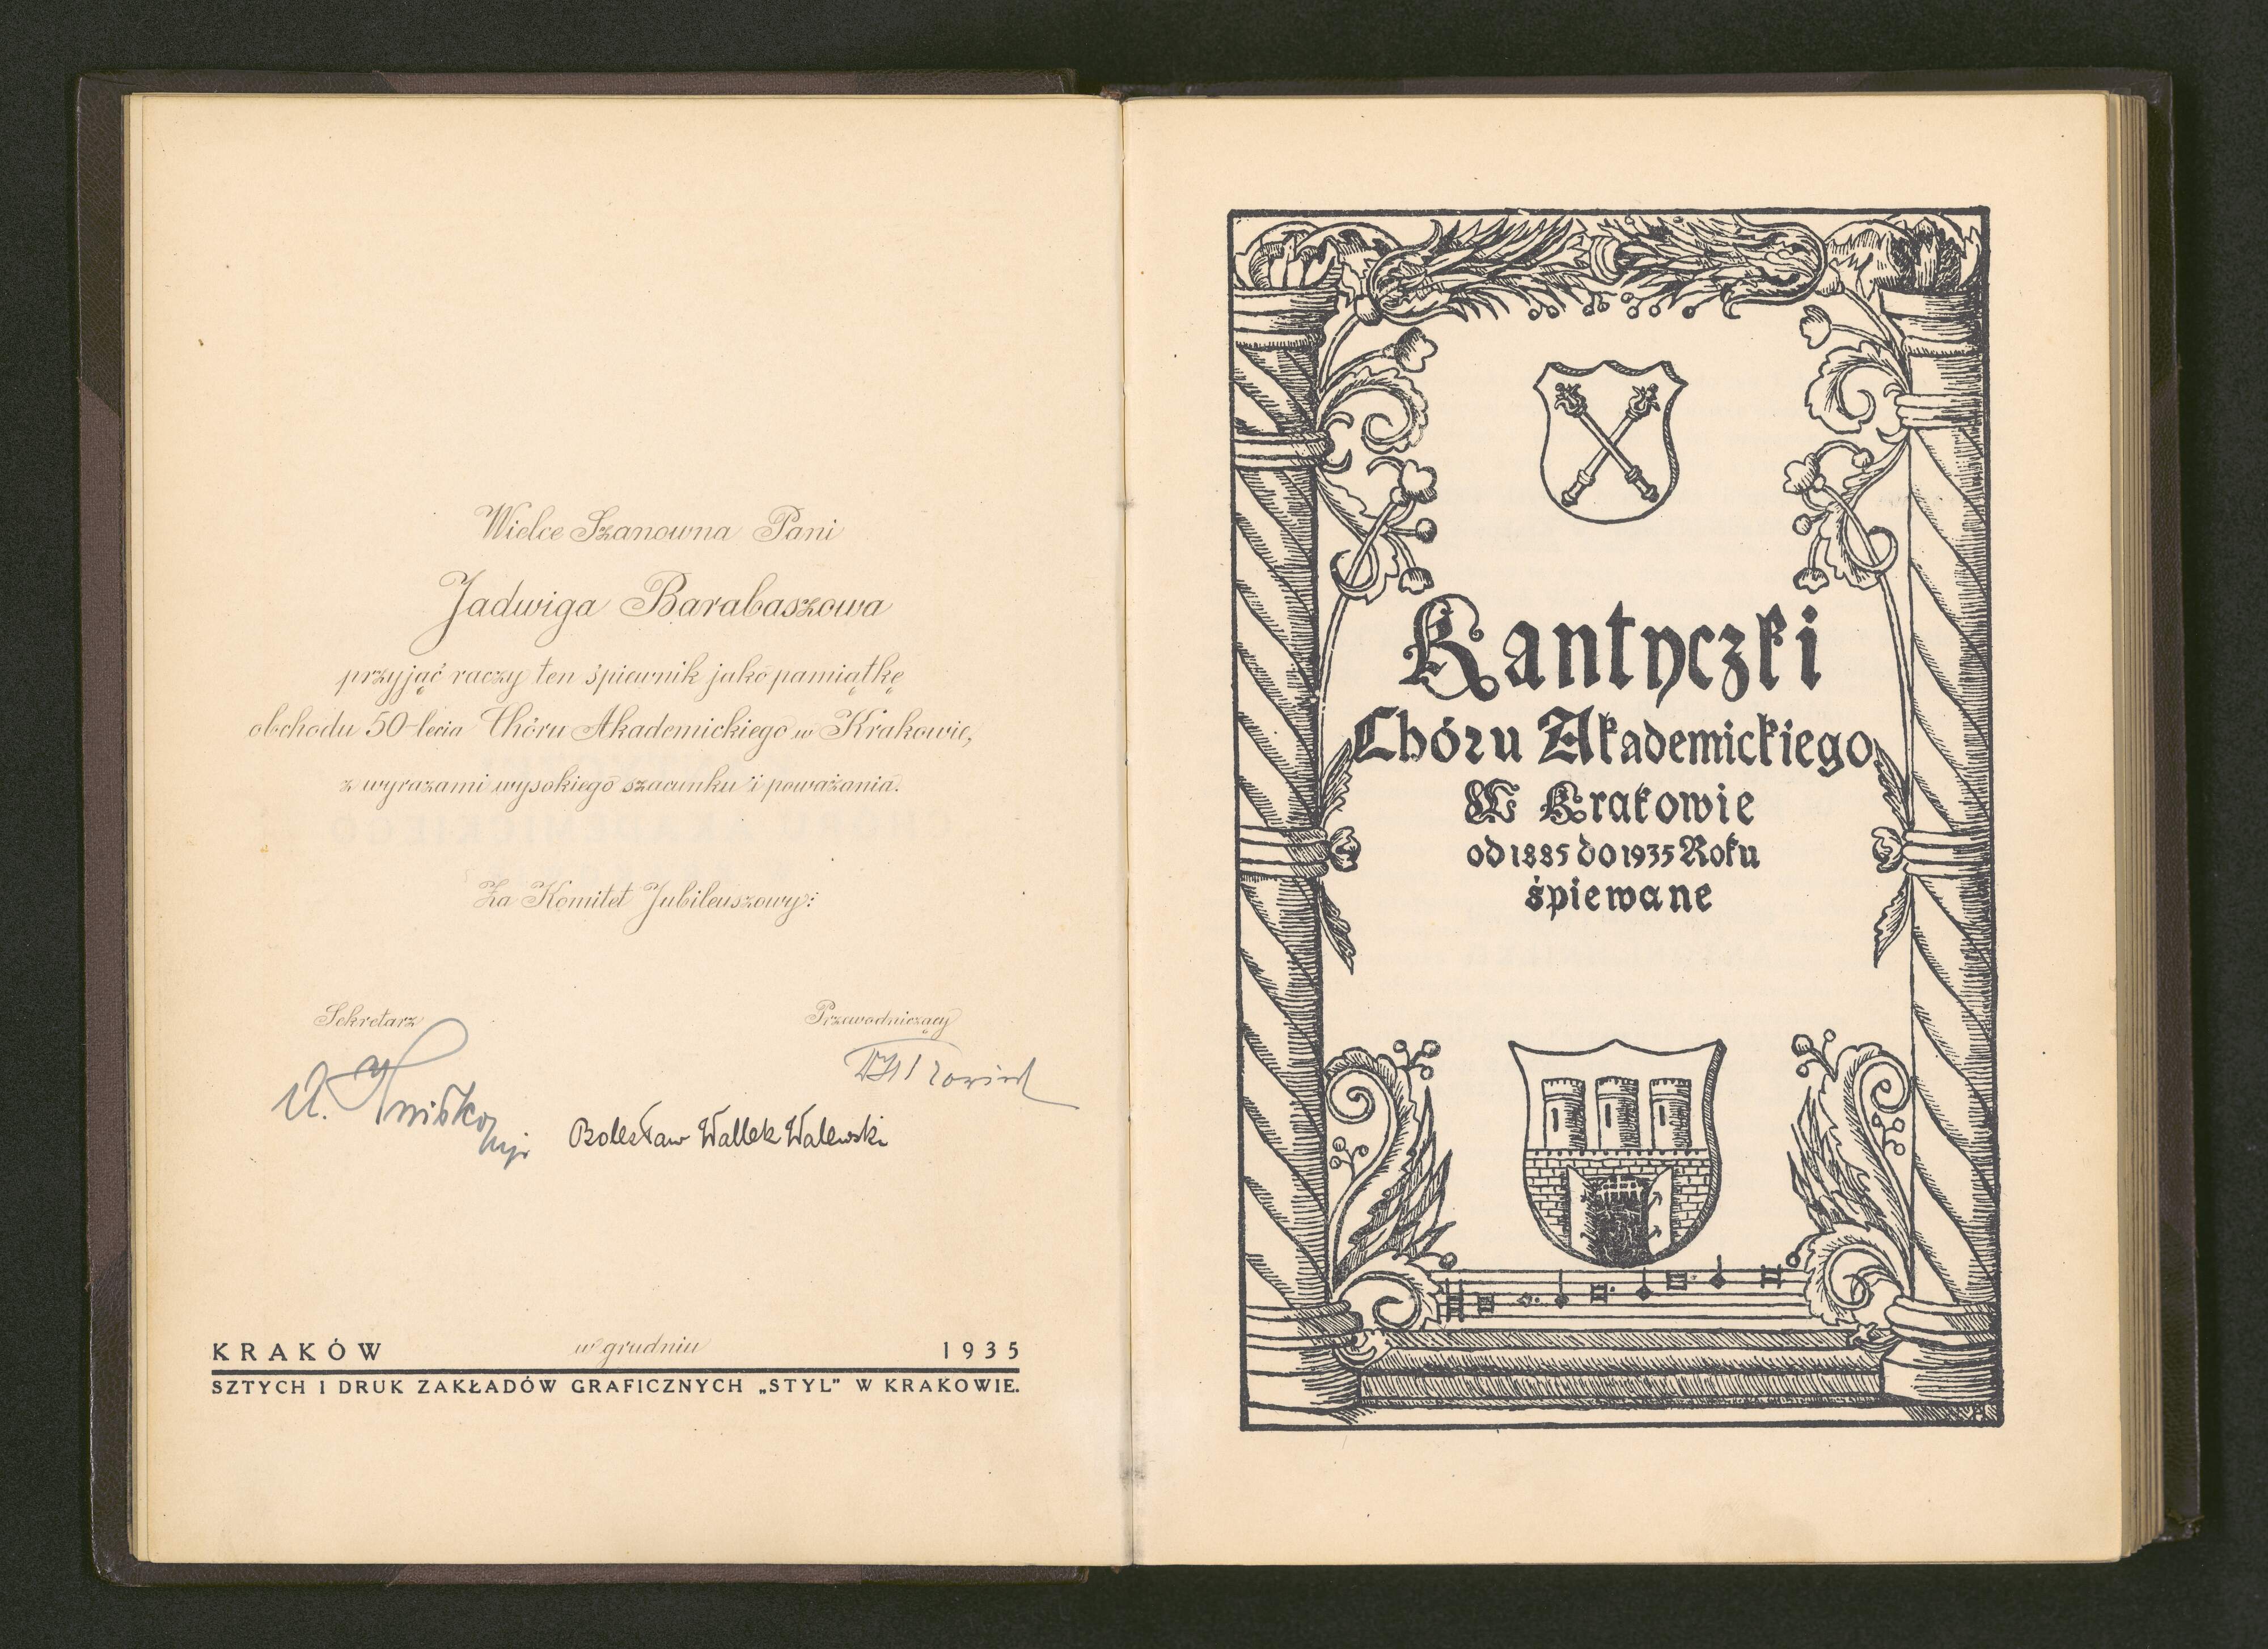 Wielce Szanowna Pani
Jadwiga Barabaszowa
przyjąć raczy ten śpiewnik jako pamiątkę
obchodu 50-lecia Chóru Akademickiego w Krakowie,
z wyrazami wysokiego szacunku i poważania.
Za Komitet Jubileuszowy:
Sekretarz
Przewodniczący
Bolesław Wallek Walewski
KRAKÓW w grudniu 1935
SZTYCH I DRUK ZAKŁADÓW GRAFICZNYCH „STYL” W KRAKOWIE.
Kantyczki
Chóru Akademickiego
W Krakowie
od 1885 do 1935 Roku
śpiewane